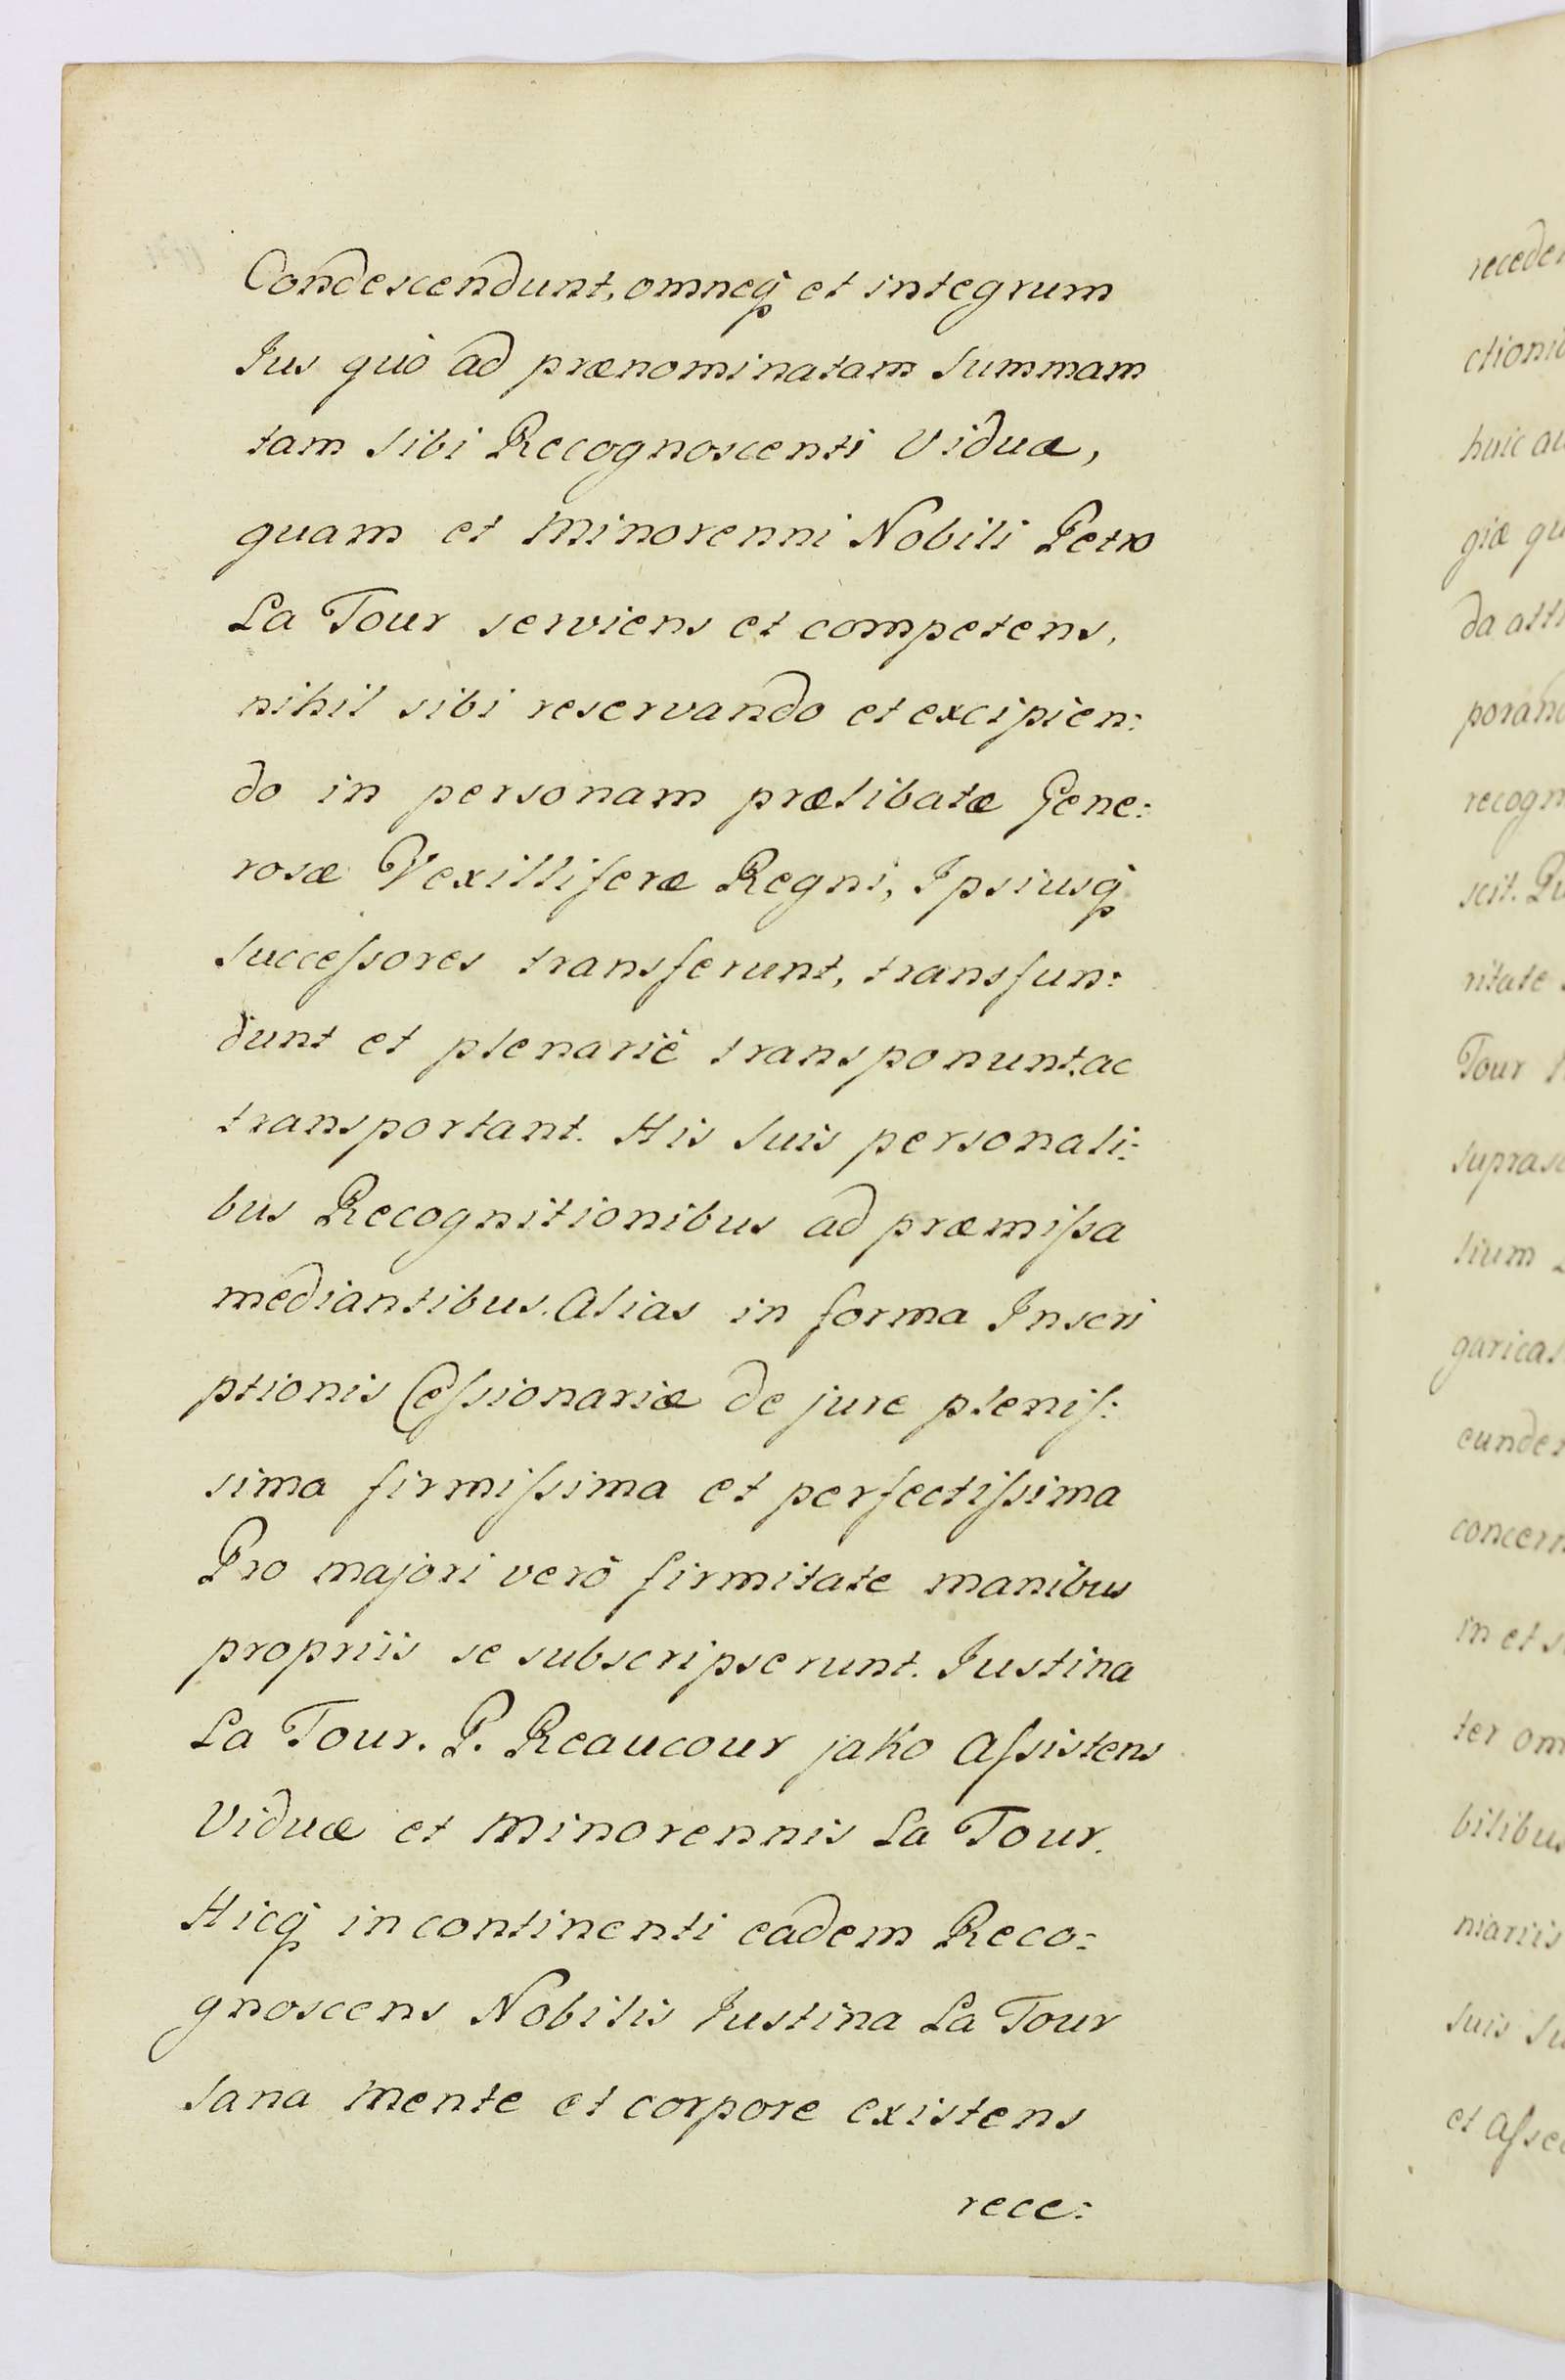 Condescendunt, omneq́ et integrum
Jus quò ad prænominatam Summam
tam Sibi Recognoscenti Viduæ,
quam et Minorenni Nobili Petro
La Tour serviens et competens,
nihil sibi reservando et excipien:
do in personam prælibatæ Gene:
rosæ Vexilliferæ Regni, Ipsiusq́
Succeſsores transferunt, transfun:
dunt et plenariè transponunt, ac
transportant. His Suis personali:
bus Recognitionibus ad præmiſsa
mediantibus. Alias in forma Inscri
ptionis Ceſsionariæ de jure pleniſ:
sima firmiſsima et perfectiſsima
Pro majori verò firmitate manibus
propriis se subscripserunt. Justina
La Tour. P. Reaucour jako Aſsistens
Viduæ et Minorennis La Tour.
Hicq́ incontinenti eadem Reco:
gnoscens Nobilis Justina La Tour
Sana Mente et corpore existens
rece:
huic
giæ
recogn
scit.
ritate
Tour
suprasc
garicas
concern
in et
ter om
bilibus
niariis
Suis
et